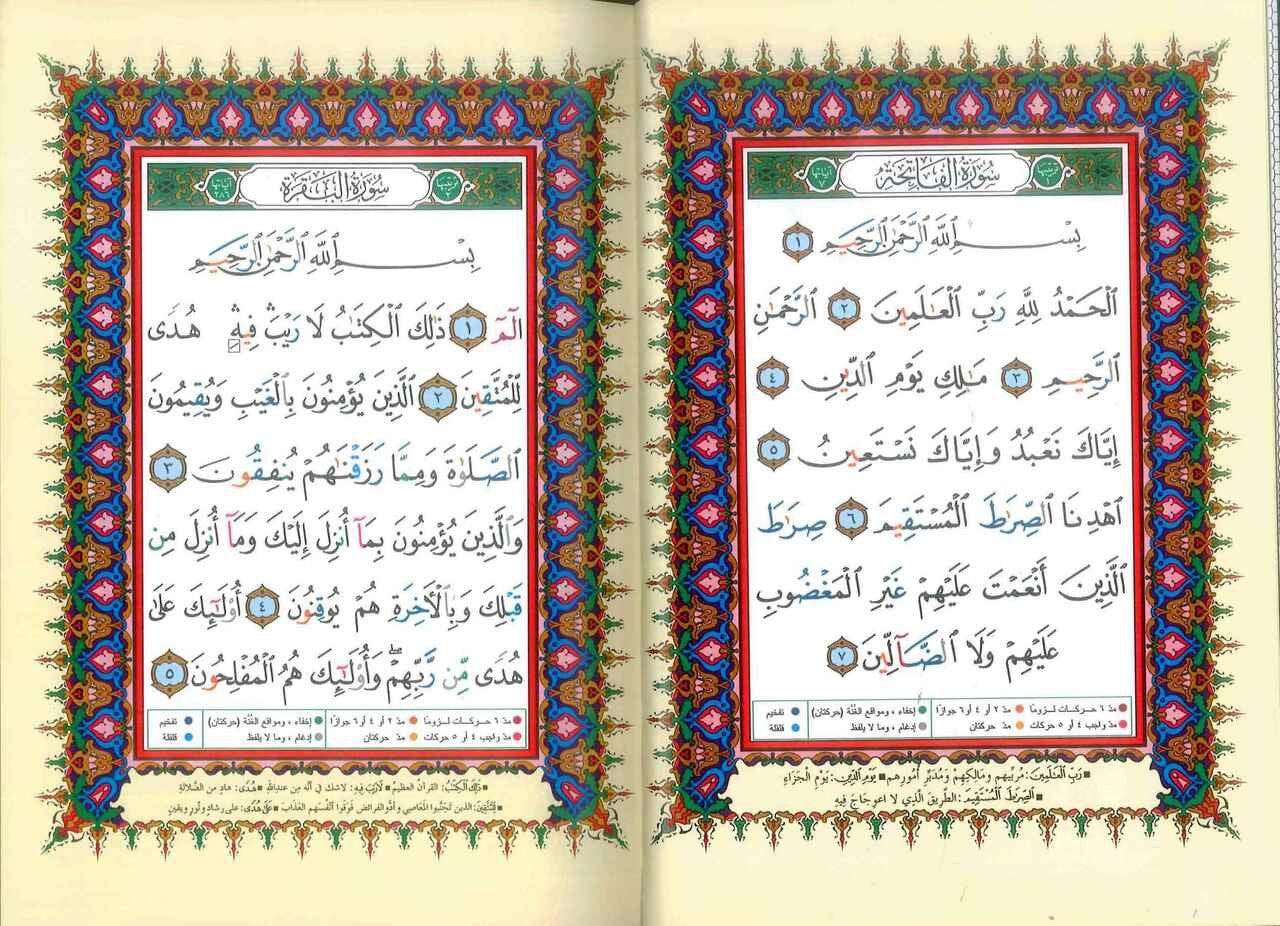 ترتيبها ١
سُورَةُ الفَاتِحَةِ
آيَاتها ٧
بِسْمِ ٱللَّهِ ٱلرَّحْمَٰنِ ٱلرَّحِيمِ ١
ٱلْحَمْدُ لِلَّهِ رَبِّ ٱلْعَٰلَمِينَ ٢ ٱلرَّحْمَٰنِ
ٱلرَّحِيمِ ٣ مَٰلِكِ يَوْمِ ٱلدِّينِ ٤
إِيَّاكَ نَعْبُدُ وَإِيَّاكَ نَسْتَعِينُ ٥
ٱهْدِنَا ٱلصِّرَٰطَ ٱلْمُسْتَقِيمَ ٦ صِرَٰطَ
ٱلَّذِينَ أَنْعَمْتَ عَلَيْهِمْ غَيْرِ ٱلْمَغْضُوبِ
عَلَيْهِمْ وَلَا ٱلضَّآلِّينَ ٧
مدّ ٦ حركات لزومًا مدّ ٢ أو ٤ أو ٦ جوازًا إخفاء ، ومواقع الغُنَّة (حركتان) تفخيم
مدّ واجب ٤ أو ٥ حركات مدّ حركتان إدغام ، وما لا يلفظ قلقلة
رَبِّ ٱلْعَٰلَمِينَ: مُرَبِّيهم وَمَالِكِهِمْ وَمُدَبِّرِ أُمُورِهم يَوْمِ ٱلدِّينِ: يَوْمِ الْجَزَاءِ
ٱلصِّرَٰطَ ٱلْمُسْتَقِيمَ: الطَّرِيقَ الَّذِي لا اعوِجَاجَ فِيهِ
ترتيبها ٢
سُورَةُ البَقَرَةِ
آيَاتها ٢٨٦
بِسْمِ ٱللَّهِ ٱلرَّحْمَٰنِ ٱلرَّحِيمِ
الٓمٓ ١ ذَٰلِكَ ٱلْكِتَٰبُ لَا رَيْبَۛ فِيهِۛ هُدًى
لِّلْمُتَّقِينَ ٢ ٱلَّذِينَ يُؤْمِنُونَ بِٱلْغَيْبِ وَيُقِيمُونَ
ٱلصَّلَوٰةَ وَمِمَّا رَزَقْنَٰهُمْ يُنفِقُونَ ٣
وَٱلَّذِينَ يُؤْمِنُونَ بِمَآ أُنزِلَ إِلَيْكَ وَمَآ أُنزِلَ مِن
قَبْلِكَ وَبِٱلْأَخِرَةِ هُمْ يُوقِنُونَ ٤ أُو۟لَٰٓئِكَ عَلَىٰ
هُدًى مِّن رَّبِّهِمْۖ وَأُو۟لَٰٓئِكَ هُمُ ٱلْمُفْلِحُونَ ٥
مدّ ٦ حركات لزومًا مدّ ٢ أو ٤ أو ٦ جوازًا إخفاء ، ومواقع الغُنَّة (حركتان) تفخيم
مدّ واجب ٤ أو ٥ حركات مدّ حركتان إدغام ، وما لا يلفظ قلقلة
ذَٰلِكَ ٱلْكِتَٰبُ: القرآن العظيم لَا رَيْبَ فِيهِ: لاشك في أنه من عندالله هُدًى: هادٍ من الضلالة
لِلْمُتَّقِينَ: الذين تجنّبوا المعاصي وأدّوا الفرائض فَوَقَوا أنفسهم العذاب عَلَىٰ هُدًى: على رشادٍ ونُورٍ ويقينٍ